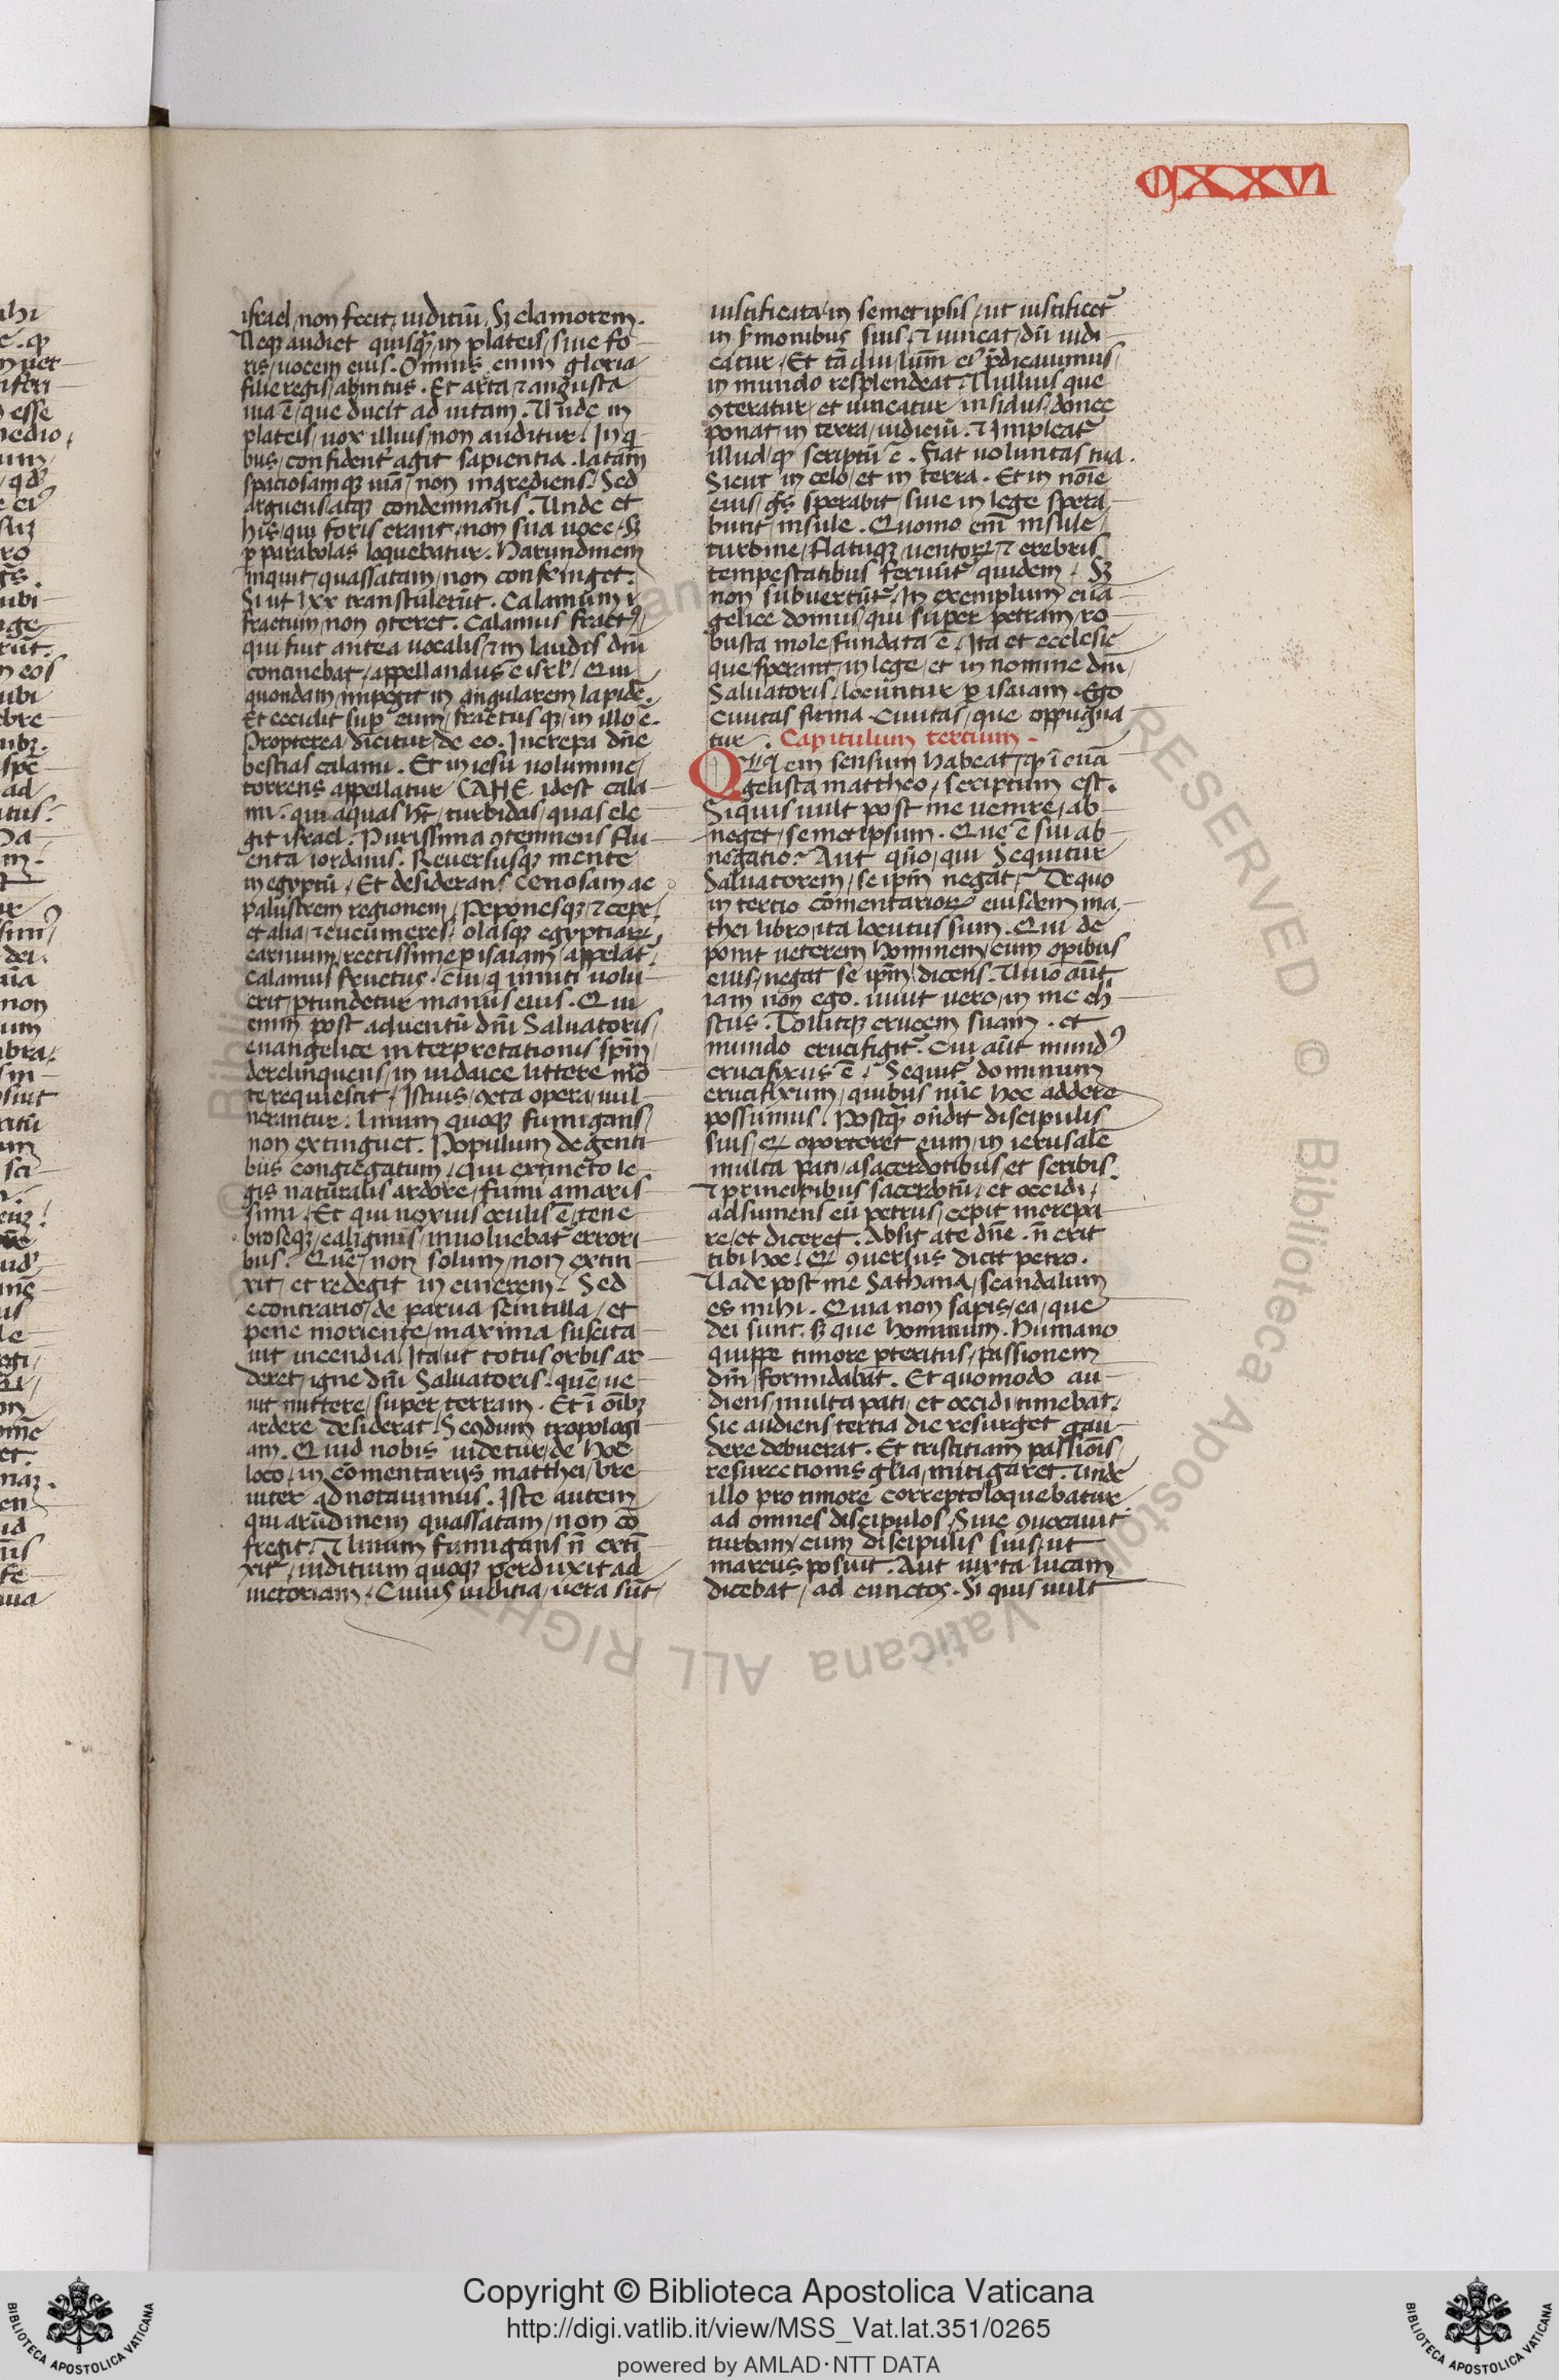 CXXVI
israel, non fecit, iuditiū. Sꝫ clamorem.
Neqꝫ audiet quisqꝫ, in plateis, siue fo-
ris, uocem eius. Omnis enim gloria
filie regis, abintus. Et arta ⁊ angusta
uia ē, que ducit ad uitam. Unde in
plateis, uox illius, non auditur. In q̄-
bus, confidentꝰ agit sapientia. latam
spatiosamqꝫ uiā, non ingrediens. Sed
arguens, atqꝫ condemnans. Unde et
his, qui foris erant, non sua uoce, sꝫ
ꝑ parabolas loquebatur. Harundinem
inquit, quassatam, non confringet.
Siut lxx transtulerūt. Calamum ꝯ-
fractum, non ꝯteret. Calamus fractꝰ,
qui fuit antea uocalis, ⁊ in laudes dn̄i
concinebat, appellandus ē isrl̄. Qui
quondam, impegit in angularem lapidē.
Et cecidit suꝑ eum, fractusqꝫ, in illo ē.
Propterea, dicitur, de eo. Increpa dn̄e
bestias calami. Et in iesu uolumine,
torrens appellatur CAHE. idest cala-
mi. qui aquas hꝫ, turbidas, quas ele-
git israel. Purissima ꝯtemnens flu-
enta iordanis. Reuersusqꝫ mente
in egyptū. Et desiderans cenosam ac
palustrem regionem. Peponesqꝫ, ⁊ cepe,
et alia, ⁊ cucumeres, olasqꝫ egyptiaꝝ
carnium, rectissime ꝑ isaiam, appelat̄
calamus fructus. cui, q̄ inniti uolu-
erit, ꝑtundetur manus eius. Qui
enim post aduentū dn̄i Saluatoris,
euangelice interpretationis spm̄,
derelinquens, in iudaice littere mo-
te requiescit, Istius, oꝯta opera, uul-
nerantur. linum quoqꝫ fumigans,
non extinguet. Populum de genti-
bus congregatum. Qui extincto le-
gis naturalis ardore, fumi amaris-
simi. Et qui noxius oculis ē, tene-
brosęqꝫ, caliginis, inuoluebat̄ errori-
bus. Quē, non solum, non extin-
xit, et redegit in cinerem. Sed
econtrario, de parua scintilla, et
pene moriente, maxima suscita-
uit incendia. Ita ut totus orbis ar-
deret, igne dn̄i Saluatoris. quē, ue-
nit mittere, super terram. Et ī oībꝫ
ardere desiderat. Secdum tropologi-
am. Quid nobis uidetur, de hoc
loco, in cōmentarijs matthei, bre-
uiter adnotauimus. Iste autem
qui arūdinem quassatam, non cō-
fregit. ⁊ linum fumigans n̄ exti-
xit, iuditium quoqꝫ perduxit ad
uictoriam. Cuius iuditia, uera sūt,
iustificata, in semetipsis, ut iustificet̄
in sermonibus suis, ⁊ uincat, dū iudi-
catur. Et tā diu, lum̄ eiꝰ p̄dicauimus,
in mundo resplendeat. Nullius que
ꝯteratur, et uincatur insidiis, donec
ponat, in terra, iudiciū. ⁊ Impleat̄
illud, qꝫ scriptū ē. Fiat uoluntas tua.
Sicut in celo, et in terra. Et in noīe
eius, gn̄s sperabit, siue in lege spera-
bunt, insule. Quomo em̄ insule,
turbine, flatuqꝫ, uentoꝝ, ⁊ crebris
tempestatibus feriūt̄ quidem, sꝫ
non subuertūt̄. In exemplum euā-
gelice domus, qui super petram, ro-
busta mole, fundata ē. Ita et ecclesie
que, sperant, in lege, et in nomine dn̄i,
Saluatoris, locūntur ꝑ isaiam. Ego
Ciuitas firma. Ciuitas, que oppugna-
tur. Capitulum tertium.
QUem sensum habeat, qꝫ ī euā-
gelista mattheo, scriptum est.
Siquis uult post me uenire, ab-
neget, semetipsum. Que ē sui ab-
negatio. Aut quo, qui sequitur
Saluatorem, se ipm̄ negat. De quo
in tertio cōmentarioꝝ eiusdem ma-
thei libro, ita locutus sum. Qui de-
ponit ueterem hominem, cum opibus
eius, negat se ipm̄, dicens. Uiuo aūt
iam non ego. uiuit uero, in me ch̄-
stus. Tollitqꝫ crucem suam. et
mundo crucifigit̄. Cui aūt mundꝰ
crucifixus ē. Sequit̄ dominum
crucifixum, quibus nūc hoc addere
possumus. Postqꝫ on̄dit discipulis
suis, qꝫ oporteret eum, in ierusalē
multa pati, a sacerdotibus, et scribis.
⁊ principibus sacerdotū, et occidi,
adsumens eū petrus, cepit increpa-
re, et diceret. Absit a te dn̄e. n̄ erit
tibi hoc. Qꝫ ꝯuersus dicit petro.
Uade post me Sathana, scandalum
es mihi. Quia non sapis, ea, que
dei sunt. sꝫ que hominum. Humano
quippe timore ꝑteritus, passionem
dn̄i, formidabat̄. Et quomodo au-
diens, multa pati, et occidi, timebat.
Sic audiens, tertia die resurget gau-
dere debuerat. Et tristitiam passiōis,
resurectionis gl̄ia, mitigaret. Unde
illo pro timore correpto, loquebatur
ad omnes discipulos, Siue ꝯuocauit
turbam, cum discipulis suis, ut
marcus posuit. Aut iuxta lucam
dicebat, ad cunctos. Si quis uult
Copyright © Biblioteca Apostolica Vaticana
http://digi.vatlib.it/view/MSS_Vat.lat.351/0265
powered by AMLAD·NTT DATA
BIBLIOTECA APOSTOLICA VATICANA
BIBLIOTECA APOSTOLICA VATICANA